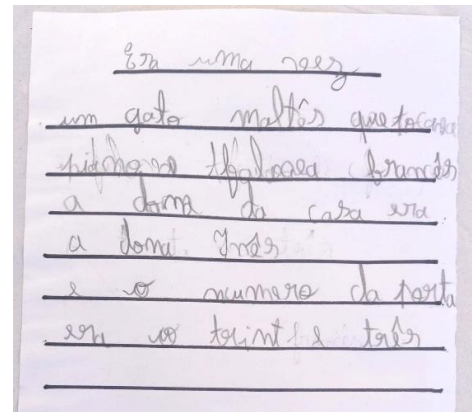 Era uma vez
um gato maltês que tocava
e falava francês
a dona da casa era
a dona Inês
e o numero da porta
era o trinta e três